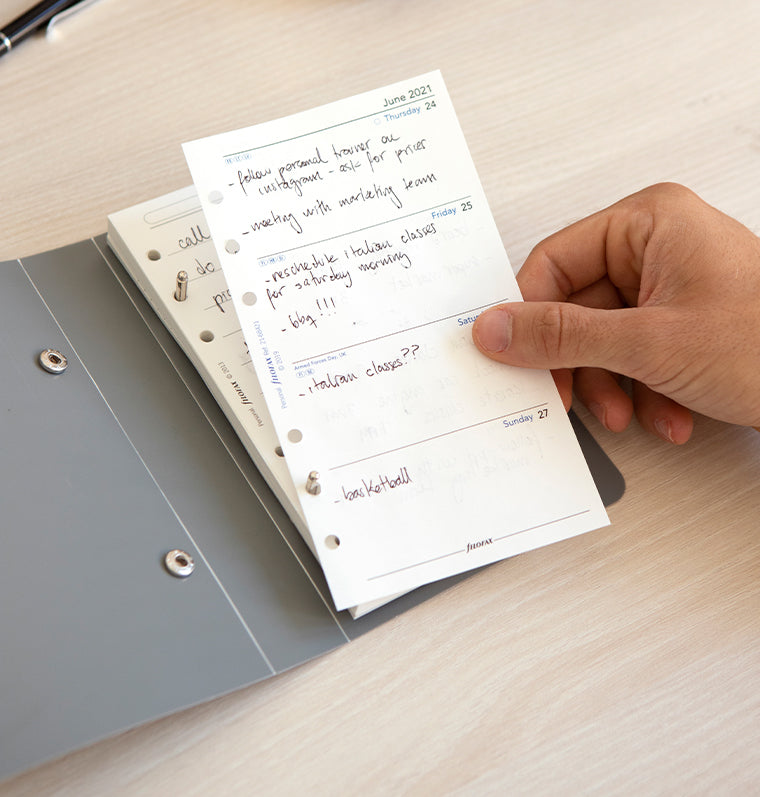 June 2021
Thursday 24
- follow personal trainer on
instagram - ask for prices
- meeting with marketing team
Friday 25
- reschedule italian classes
for saturday morning
- bbq!!!
Armed Forces Day, UK
- italian classes??
Sunday 27
- basketball
fILOFAX
Personal fILOFAX © 2019
call
do
Personal fILOFAX © 2013